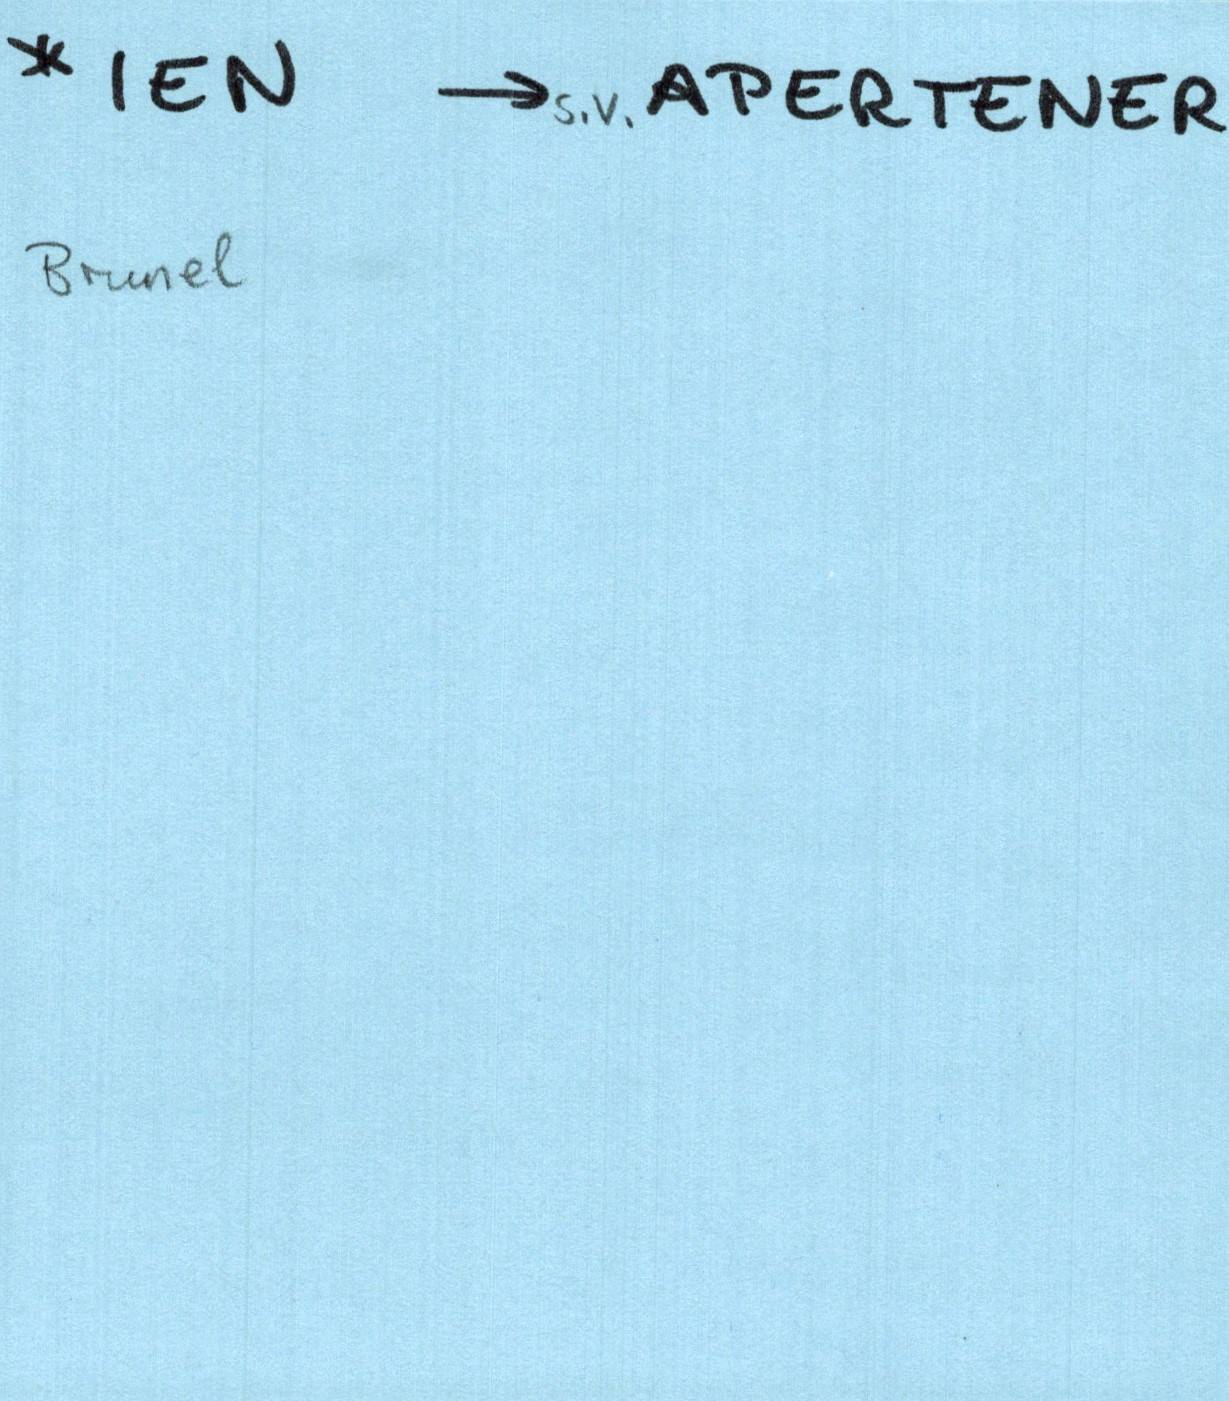 * IEN → s.v. APERTENER
Brunel